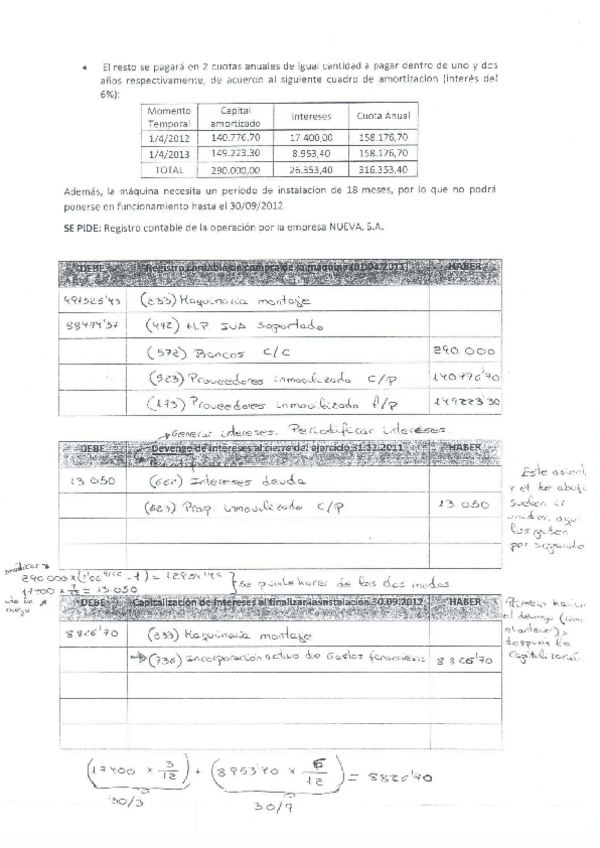 • El resto se pagará en 2 cuotas anuales de igual cantidad a pagar dentro de uno y dos
años respectivamente, de acuerdo al siguiente cuadro de amortización (interés del
6%):
Momento Temporal Capital amortizado Intereses Cuota Anual
1/4/2012 140.776,70 17.400,00 158.176,70
1/4/2013 149.223,30 8.953,40 158.176,70
TOTAL 290.000,00 26.353,40 316.353,40
Además, la máquina necesita un periodo de instalación de 18 meses, por lo que no podrá
ponerse en funcionamiento hasta el 30/09/2012.
SE PIDE: Registro contable de la operación por la empresa NUEVA, S.A.
DEBE Registro contable de compra de la máquina (01.04.2011) HABER
(233) Maquinaria montaje
(472) H.P IVA Soportado
(572) Bancos C/C 290.000
(523) Proveedores inmovilizado C/p 140776'70
(173) Proveedores inmovilizado l/p 149223'30
Generar intereses. Periodificar intereses
DEBE Devengo de intereses al cierre del ejercicio 31.12.2011 HABER
13 050 (661) Intereses deuda
(523) Prov. inmovilizado C/p 13 050
Este asient.
y el de abajo
suelen ir
unidos, aquí
los piden
por separado
17400 x 9/12 = 13 050
se puede hacer de las dos modos
DEBE Capitalización de intereses al finalizar la instalación 30.09.2012 HABER
8826'70 (233) Maquinaria montaje
(736) Incorporación activo de Gastos financieros 8826'70
Primero hacer
el devengo
después la
Capitalización
(17400 x 3/12) + (8953'40 x 6/12) = 8826'70
30/3 30/9